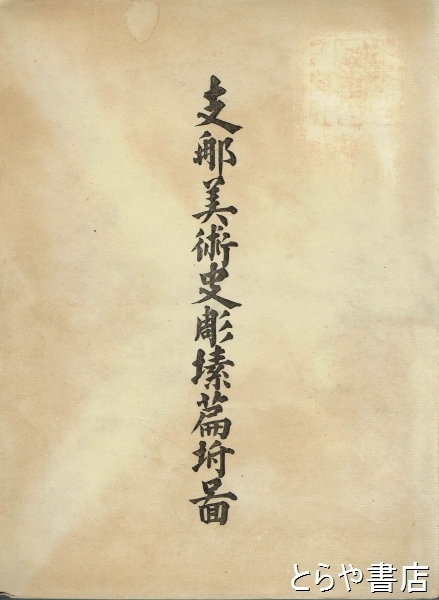 支那美術史彫塑篇坿圖
とらや書店